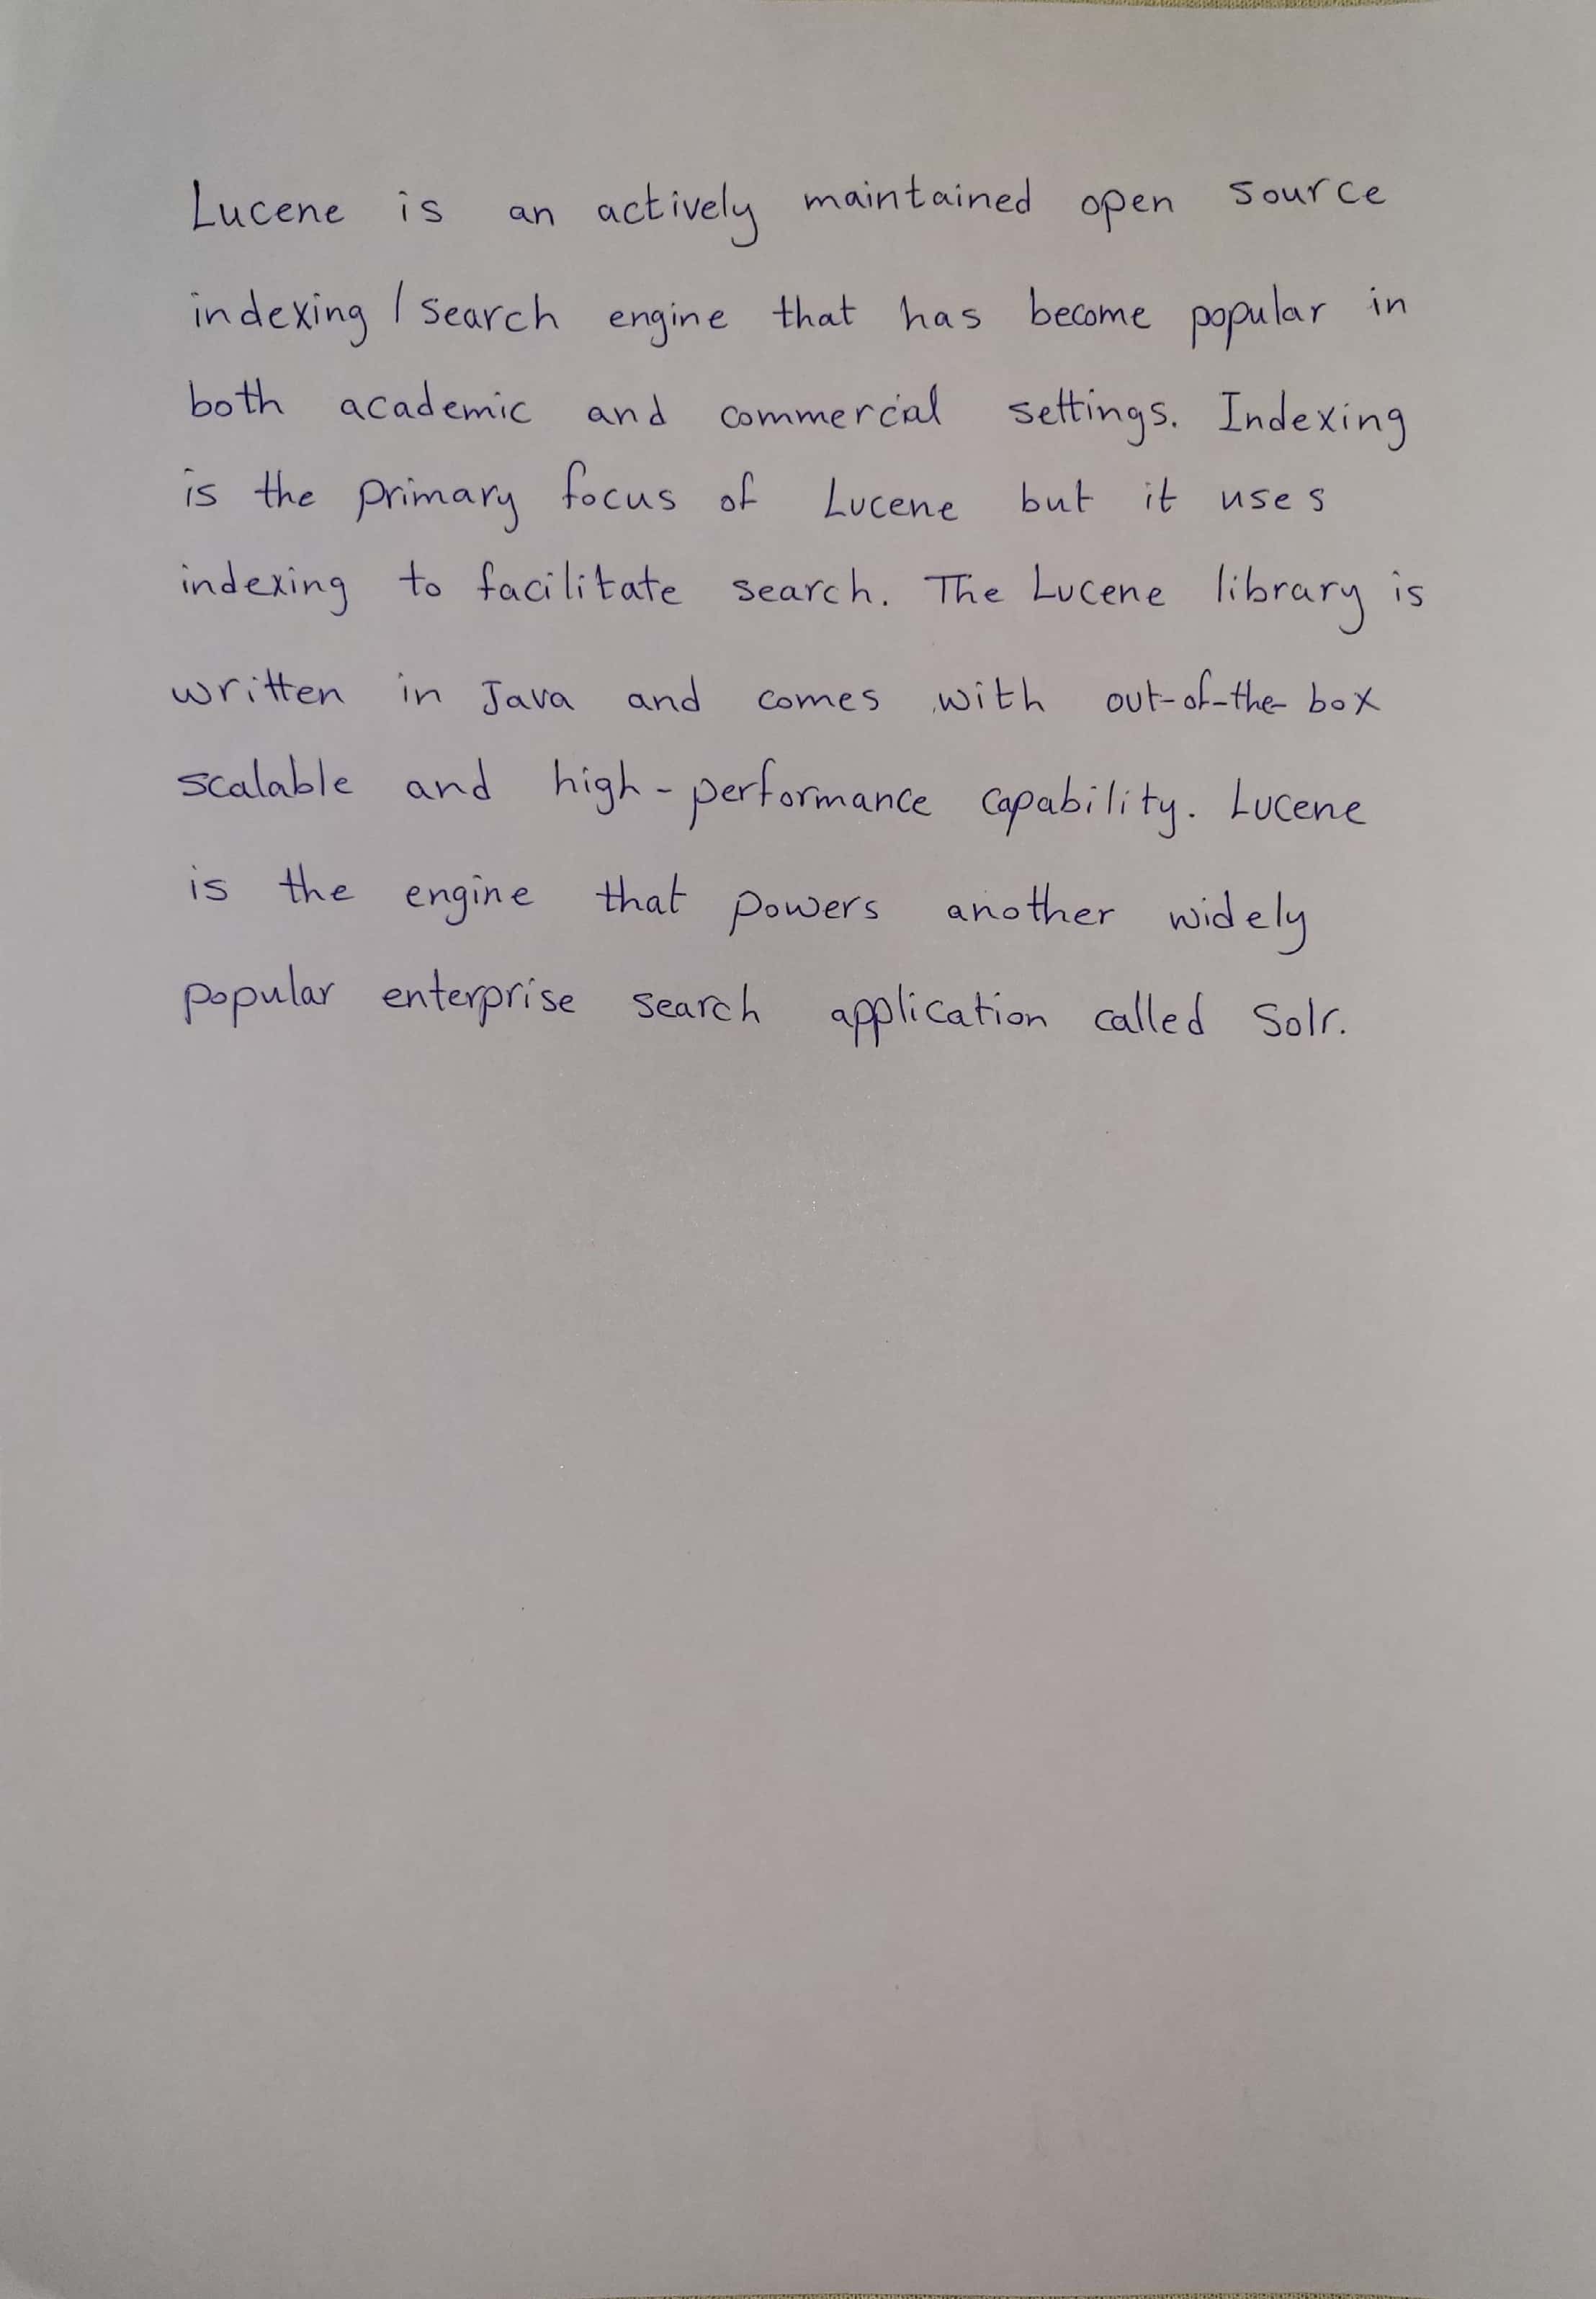 Lucene is an actively maintained open source
indexing / search engine that has become popular in
both academic and commercial settings. Indexing
is the primary focus of Lucene but it uses
indexing to facilitate search. The Lucene library is
written in Java and comes with out-of-the-box
scalable and high-performance capability. Lucene
is the engine that powers another widely
popular enterprise search application called Solr.